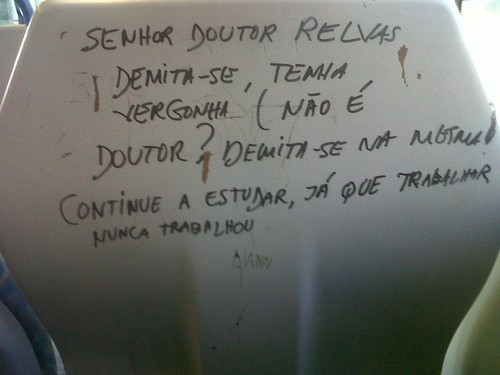 SENHOR DOUTOR RELVAS
DEMITA-SE, TENHA
VERGONHA (NÃO É
DOUTOR? DEMITA-SE NA MESMA)
CONTINUE A ESTUDAR, JÁ QUE TRABALHAR
NUNCA TRABALHOU